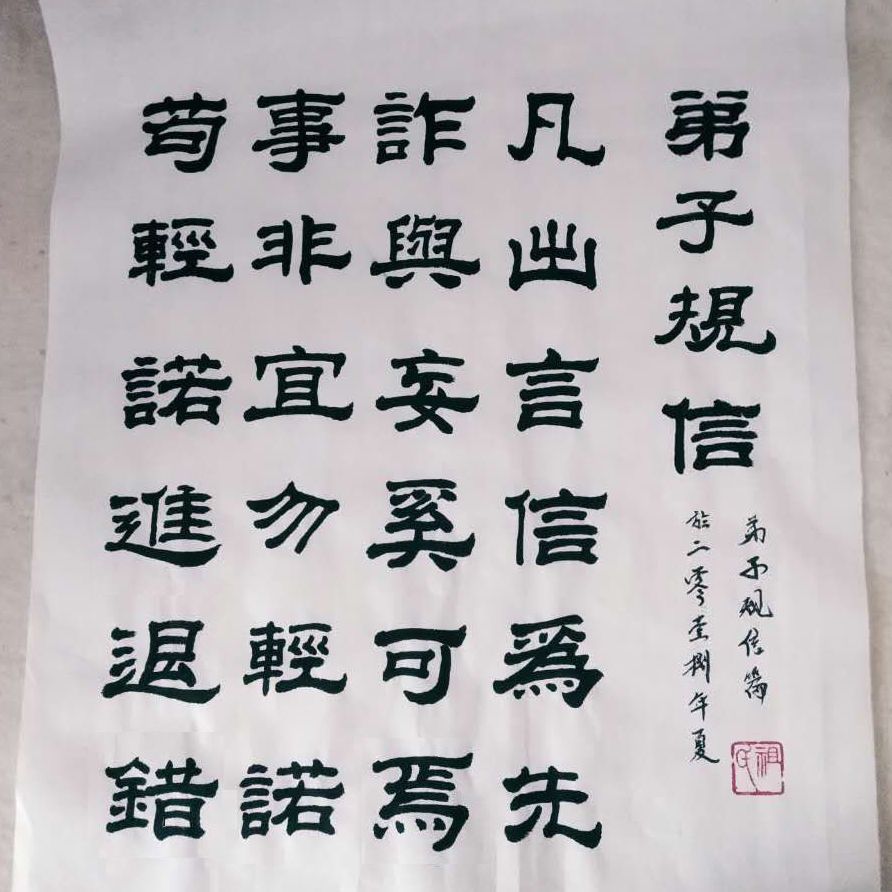 弟子規信
弟子規信篇
於二零壹捌年夏
祖氏
凡出言信為先
詐與妄奚可焉
事非宜勿輕諾
苟輕諾進退錯